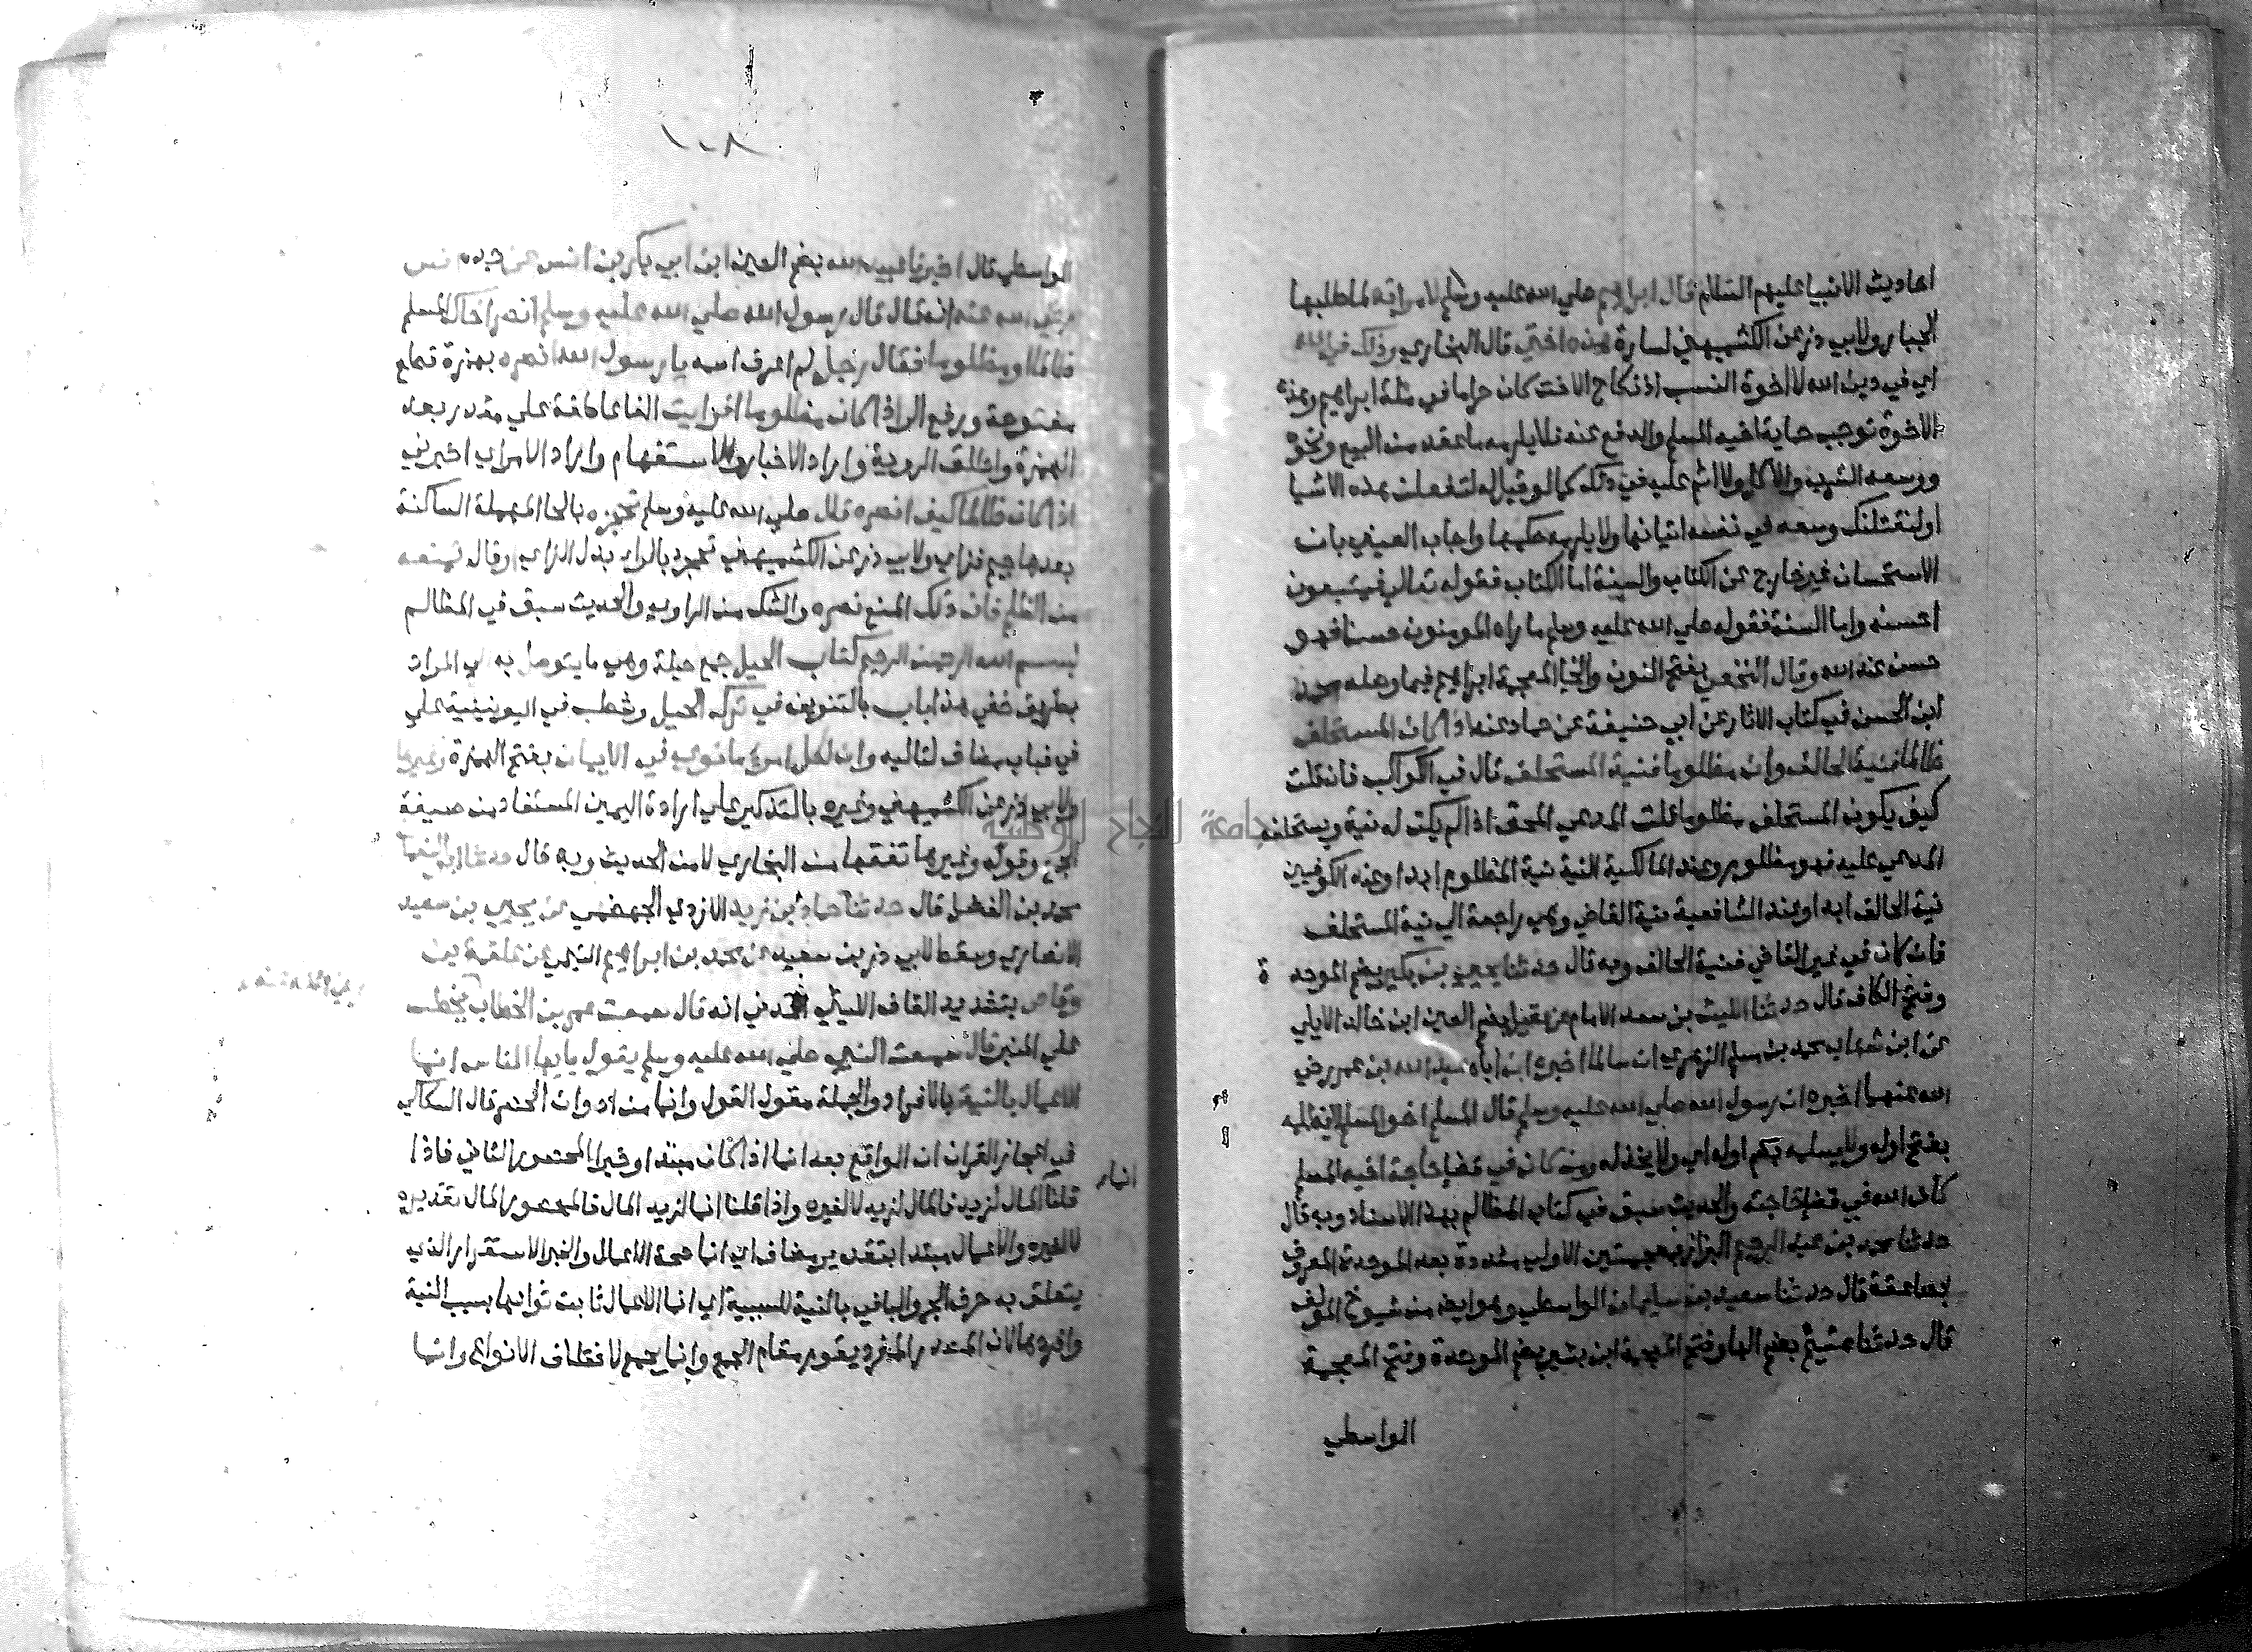 احاديث الانبيا عليهم السلام قال ابراهيم صلي الله عليه وسلم لامراته لما طلبها
الجبار ولابي ذر عن الكشميهني لسارة هذه اختي قال البخاري وذلك في الله
اي في دين الله لا اخوة النسب اذ نكاح الاخت كان حراما في ملة ابراهيم وهذه
الاخوة توجب حماية اخيه المسلم والدفع عنه فلا يلزمه ما عقد من البيع ونحوه
ووسعه الشرب والاكل ولا اثم عليه في ذلك كما لو قيل له لتفعلن هذه الاشيا
او لنقتلنك وسعه في نفسه اتيانها ولا يلزمه حكمها واجاب العيني بان
الاستحسان غير خارج عن الكتاب والسنة اما الكتاب فقوله تعالي فيتبعون
احسنه واما السنة فقوله صلي الله عليه وسلم ما راه المومنون حسنا فهو
حسن عند الله وقال النخعي بفتح النون والخا المعجمة ابراهيم فيما وصله محمد
ابن الحسن في كتاب الاثار عن ابي حنيفة عن حماد عنه اذا كان المستحلف
ظالما فنية الحالف وان مظلوما فنية المستحلف قال في الكواكب فان قلت
كيف يكون المستحلف مظلوما قلت المدعي المحق اذا لم يكن له نية ويستحلفه
المدعي عليه فهو مظلوم وعند المالكية النية نية المظلوم ابدا وعند الكوفيين
نية الحالف ابدا وعند الشافعية نية القاضي وهي راجعة الي نية المستحلف
فان كان في غير القاضي فنية الحالف وبه قال حدثنا يحيي بن بكير بضم الموحد ة
وفتح الكاف قال حدثنا الليث بن سعد الامام عن عقيل بضم العين ابن خالد الايلي
عن ابن شهاب محمد بن مسلم الزهري ان سالما اخبره ان اباه عبد الله بن عمر رضي
الله عنهما اخبره ان رسول الله صلي الله عليه وسلم قال المسلم اخو المسلم لا يظلمه
بفتح اوله ولا يسلمه بضم اوله اي ولا يخذله ومن كان في حاجة اخيه المسلم
كان الله في حاجته والحديث سبق في كتاب المظالم بهذا الاسناد وبه قال
حدثنا محمد بن عبد الرحيم البزاز بمعجمتين الاولي مشددة بعد الموحدة المعروف
بصاعقة قال حدثنا سعيد بن سليمان الواسطي وهو ايضا من شيوخ المولف
قال حدثنا هشيم بضم الها وفتح المعجمة ابن بشير بضم الموحدة وفتح المعجمة
الواسطي
١٠٨
الواسطي قال اخبرنا عبيد الله بضم العين ابن ابي بكر بن انس عن جده انس
رضي الله عنه انه قال قال رسول الله صلي الله عليه وسلم انصر اخاك المسلم
ظالما او مظلوما فقال رجل لم اعرف اسمه يا رسول الله انصره بهمزة قطع
مفتوحة ورفع الرا اذا كان مظلوما افرايت الفا عاطفة علي مقدر بعد
الهمزة واطلق الروية واراد الاخبار والاستفهام واراد الامر اي اخبرني
اذا كان ظالما كيف انصره قال صلي الله عليه وسلم تحجزه بالحا المهملة الساكنة
بعدها جيم فزاي ولابي ذر عن الكشميهني تحجره بالرا بدل الزاي وقال تمنعه
من الظلم فان ذلك المنع نصره والشك من الراوي والحديث سبق في المظالم
بسم الله الرحمن الرحيم كتاب الحيل جمع حيلة وهي ما يتوصل به الي المراد
بطريق خفي هذا باب بالتنوين في ترك الحيل وشطب في اليونينية علي
في فباب مضاف لتاليه وان لكل امري ما نوي في الايمان بفتح الهمزة وغيرها
ولابي ذر عن الكشميهني وغيره بالتذكير علي ارادة اليمين المستفاد من صيغة
الجمع وقوله وغيرها تفقها من البخاري لا من الحديث وبه قال حدثنا ابو النعمان
محمد بن الفضل قال حدثنا حماد بن زيد الازدي الجهضمي عن يحيي بن سعيد
الانصاري وسقط لابي ذر بن سعيد عن محمد بن ابراهيم التيمي عن علقمة بن
وقاص بتشديد القاف الليثي المدني انه قال سمعت عمر بن الخطاب يخطب
علي المنبر قال سمعت النبي صلي الله عليه وسلم يقول يا ايها الناس انما
الاعمال بالنية بالافراد والجملة مقول القول وانما من ادوات الحصر قال السكاكي
في اعجاز القران ان الواقع بعد انما اذا كان مبتدا وخبرا المحصور الثاني فاذا
قلنا المال لزيد فالمال لزيد لا لغيره واذا قلنا انما لزيد المال فالمحصور المال تقديره
لا لغيره والاعمال مبتدا بتقدير مضاف اي انما صحة الاعمال والخبر الاستقرار الذي
يتعلق به حرف الجر والبا في بالنية للسببية اي انما الاعمال ثابت ثوابها بسبب النية
وافردها لان المصدر المفرد يقوم مقام الجمع وانما يجمع لاختلاف الانواع وانما
انما
جامعة النجاح الوطنية